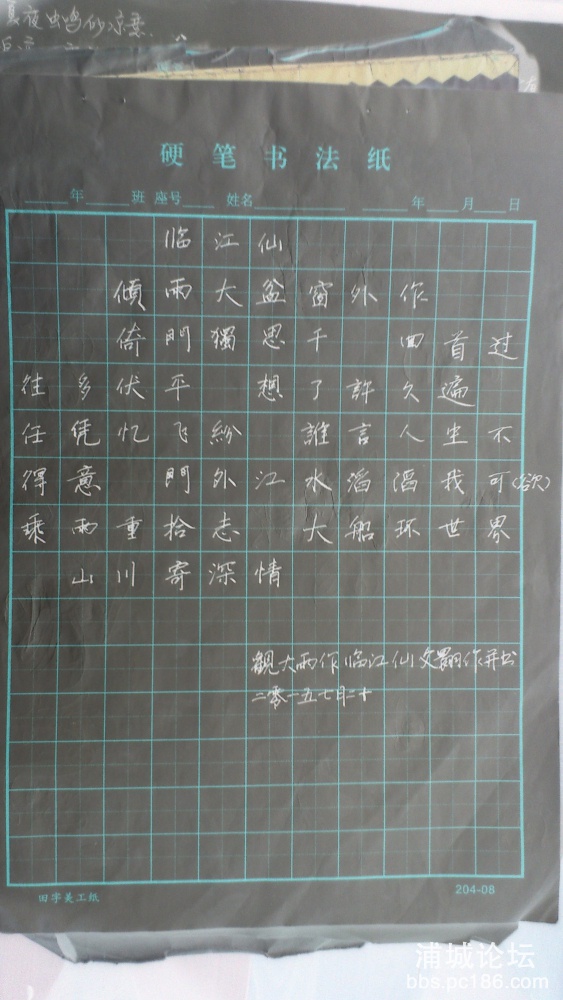 夏夜虫鸣
硬笔书法纸
年 班 座号 姓名 年 月 日
临江仙
傾雨大盆窗外作
倚門獨思千 回首过
往多伏平 想了許久遍
任凭忆飞紛 誰言人生不
得意 門外江水滔滔我可(欲)
乘雨重拾志 大船环世界
山川寄深情
觀大雨作临江仙文 作并书
二零一五七月二十
田字美工纸
204-08
浦城论坛
bbs.pc186.com